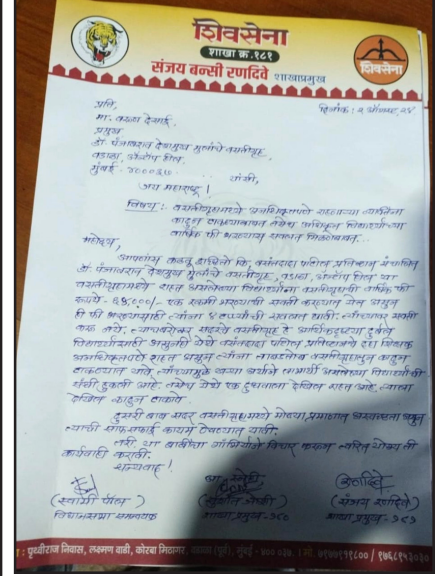 शिवसेना
शाखा क्र.१८१
संजय बन्सी रणदिवे शाखाप्रमुख
शिवसेना
दिनांक : २ ऑगस्ट, २४
प्रति,
मा. देसाई,
प्रमुख
डॉ. पंजाबराव देशमुख मुलांचे वसतीगृह,
वडाळा, अँटॉप हिल,
मुंबई - ४०००३७
यांसी,
जय महाराष्ट्र !
विषय : वसतीगृहामध्ये अनधिकृतपणे राहणाऱ्या व्यक्तिंना
काढून टाकण्याबाबत तसेच अधिकृत विद्यार्थ्यांच्या
वार्षिक फी भरण्यास सवलत मिळणेबाबत...
महोदय,
आपणांस कळवू इच्छितो कि, वसंतदादा पाटील प्रतिष्ठान संचलित
डॉ. पंजाबराव देशमुख मुलांचे वसतीगृह, वडाळा, अँटॉप हिल या
वसतीगृहामध्ये राहत असलेल्या विद्यार्थ्यांना वसतीगृहाची वार्षिक फी
रुपये - ६५,०००/- एक रकमी भरण्याची सक्ती करण्यात येत असून
ही फी भरण्यासाठी त्यांना ४ टप्प्यांची सवलत द्यावी. त्यांच्यावर सक्ती
करू नये. त्याचबरोबर सदरचे वसतीगृह हे आर्थिकदृष्ट्या दुर्बल
विद्यार्थ्यांसाठी असूनही येथे वसंतदादा पाटील प्रतिष्ठानचे शिक्षक
अनधिकृतपणे राहत असून त्यांना ताबडतोब वसतीगृहातून काढून
टाकण्यात यावे. त्यांच्यामुळे खऱ्या अर्थाने लाभार्थी असलेल्या विद्यार्थ्यांची
संधी हुकली आहे. तसेच येथे एक देखिल राहत आहे त्याला
देखिल काढून टाकावे.
दुसरी बाब सदर वसतीगृहामध्ये मोठ्या प्रमाणात अस्वच्छता असून
त्याची साफसफाई कायम ठेवण्यात यावी.
तरी या बाबींचा गांभिर्याने विचार करून त्वरित योग्य ती
कार्यवाही करावी.
धन्यवाद !
विधानसभा समन्वयक
शाखाप्रमुख - १८०
(संजय रणदिवे)
शाखाप्रमुख - १८१
: पृथ्वीराज निवास, लक्ष्मण वाडी, कोरबा मिठागर, वडाळा (पूर्व), मुंबई - ४०० ०३७.